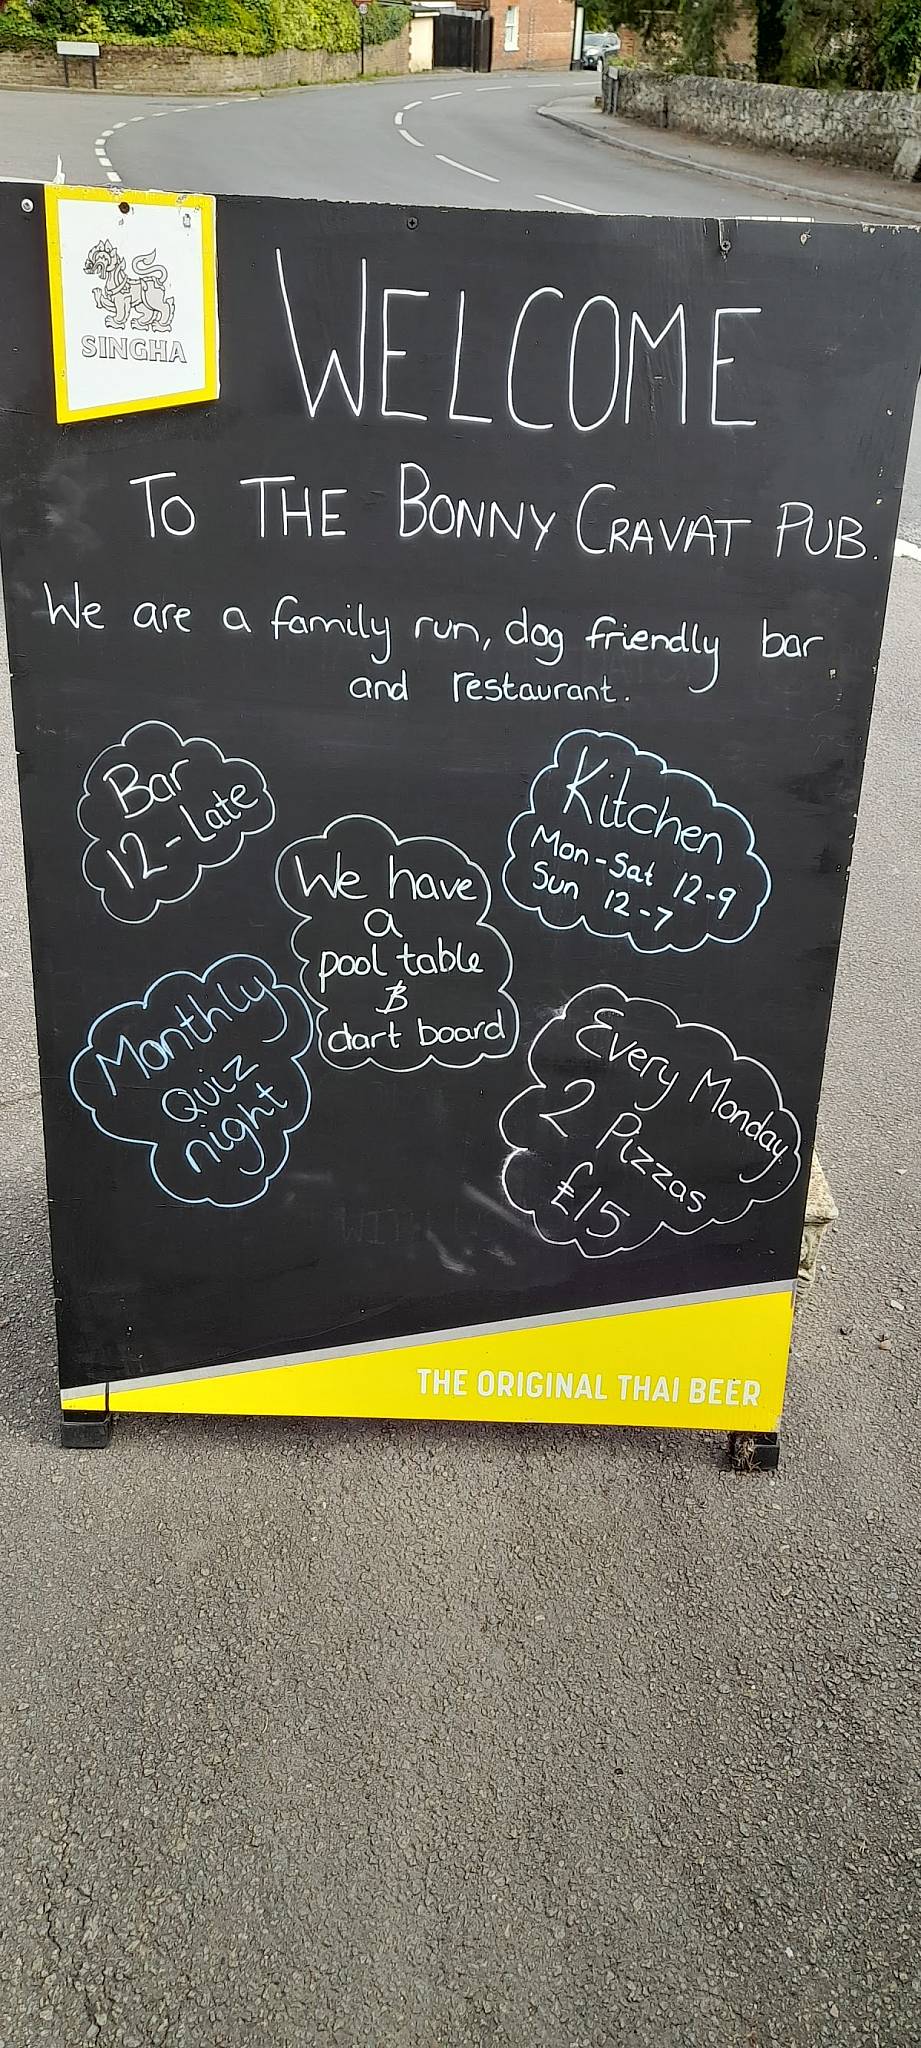 SINGHA
WELCOME
TO THE BONNY CRAVAT PUB.
We are a family run, dog friendly bar
and restaurant.
Bar
12-Late
Kitchen
Mon-Sat 12-9
Sun 12-7
We have
a
pool table
&
dart board
Monthly
Quiz
night
Every Monday
2 Pizzas
£15
THE ORIGINAL THAI BEER